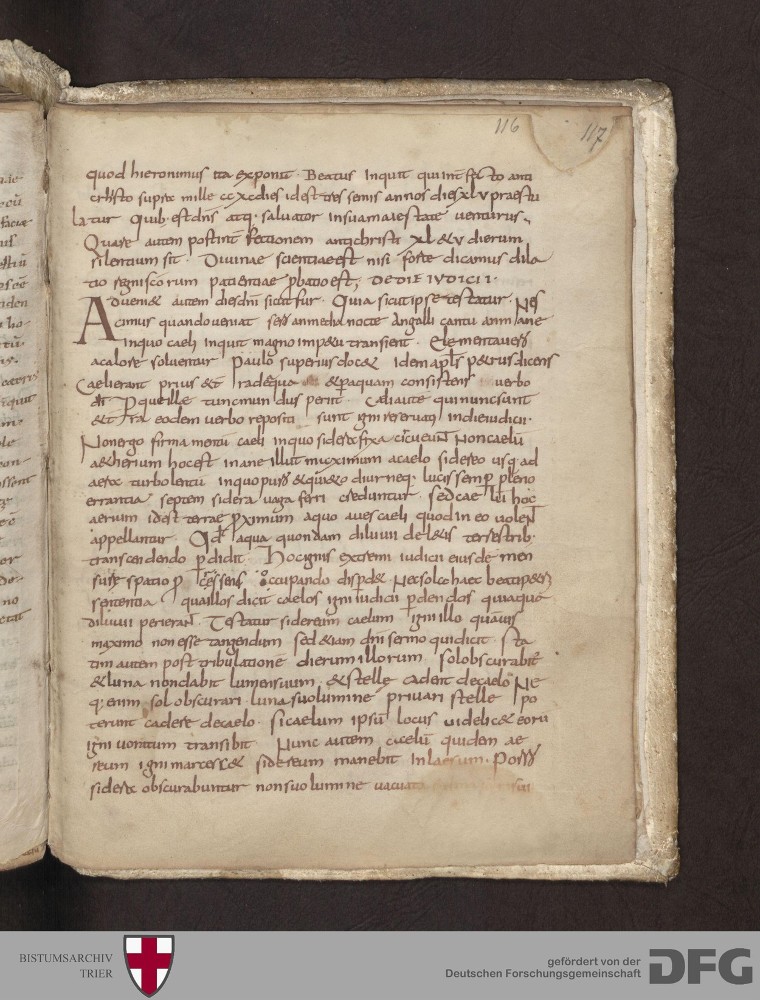 116 117
quod hieronimus ita exponit · Beatus Inquit qui int
supra mille ccxc dies id est tres semis annos dies xlv praesto
latur Quib: est dns atq; salvator insuamaiestate venturus
Quare autem postint antichristi xl & v dierum
silentium sit · Divinae scientiae est nisi forte dicamus dila
tio patientiae pbatio est, DE DIE IVDICII ·
Adveni& autem diesdni sicut fur · Quia sicut ipse testatur · Nes
cimus quando veniat sero an media nocte angalli cantu an mane
inquo caeli inquit magno imp&u transient · Elementa vero
a calore solventur Paulo superius doc& Idem apls p&rus dicens
Caeli erant prius & t ra deaqua & paquam consistens verbo
di p que ille tunc mundus periit · Caeli aute qui nunc sunt
& t ra eodem verbo repositi sunt igni reservati indie iudicii ·
Non ergo firmamentū caeli inquo sidera fixa Non caelū
a&herium hoc est inane illut maximum a caelo sidereo usq; ad
aera turbolentū inquo puro & diurneq; lucis semp pleno
errantia septem sidera vaga ferri creduntur sed cae lū hoc
aerium id est terrae pximum a quo aves caeli quod in eo volent
appellantur Qd aqua quondam diluvii
transcendendo pdidit · Hoc ignis extremi iudicii eiusde men
sure spatio p occupando disperd& Nec solo haec beati p&ri
sententia qua illos dicit caelos igni iudicii pdendos qui aqua
diluvii perierant Testatur sidereum caelum igni illo quāvis
maximo non esse tangendum sed &iam dni sermo qui dicit · Sta
tim autem post tribulatione dierum illorum sol obscurabit
& luna non dabit lumen suum · & stelle cadent de caelo Ne
q; enim sol obscurari · luna suo lumine privari stelle po
terunt cadere de caelo · si caelum ipsū locus videlic& eorū
igni voratum transibit Nunc autem cū celū quidem ae
reum igni marcess& sidereum manebit · Porro
sidera obscurabuntur non suo lumine vacuata
BISTUMSARCHIV
TRIER
gefördert von der
Deutschen Forschungsgemeinschaft
DFG